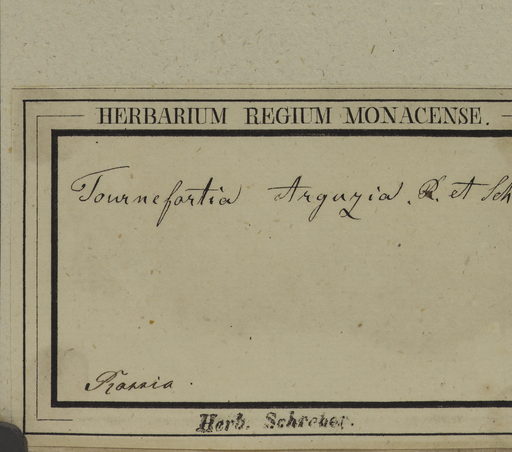 HERBARIUM REGIUM MONACENSE.
Tournefortia Arguzia. R. et Sch
Rossia.
Herb. Schreber.